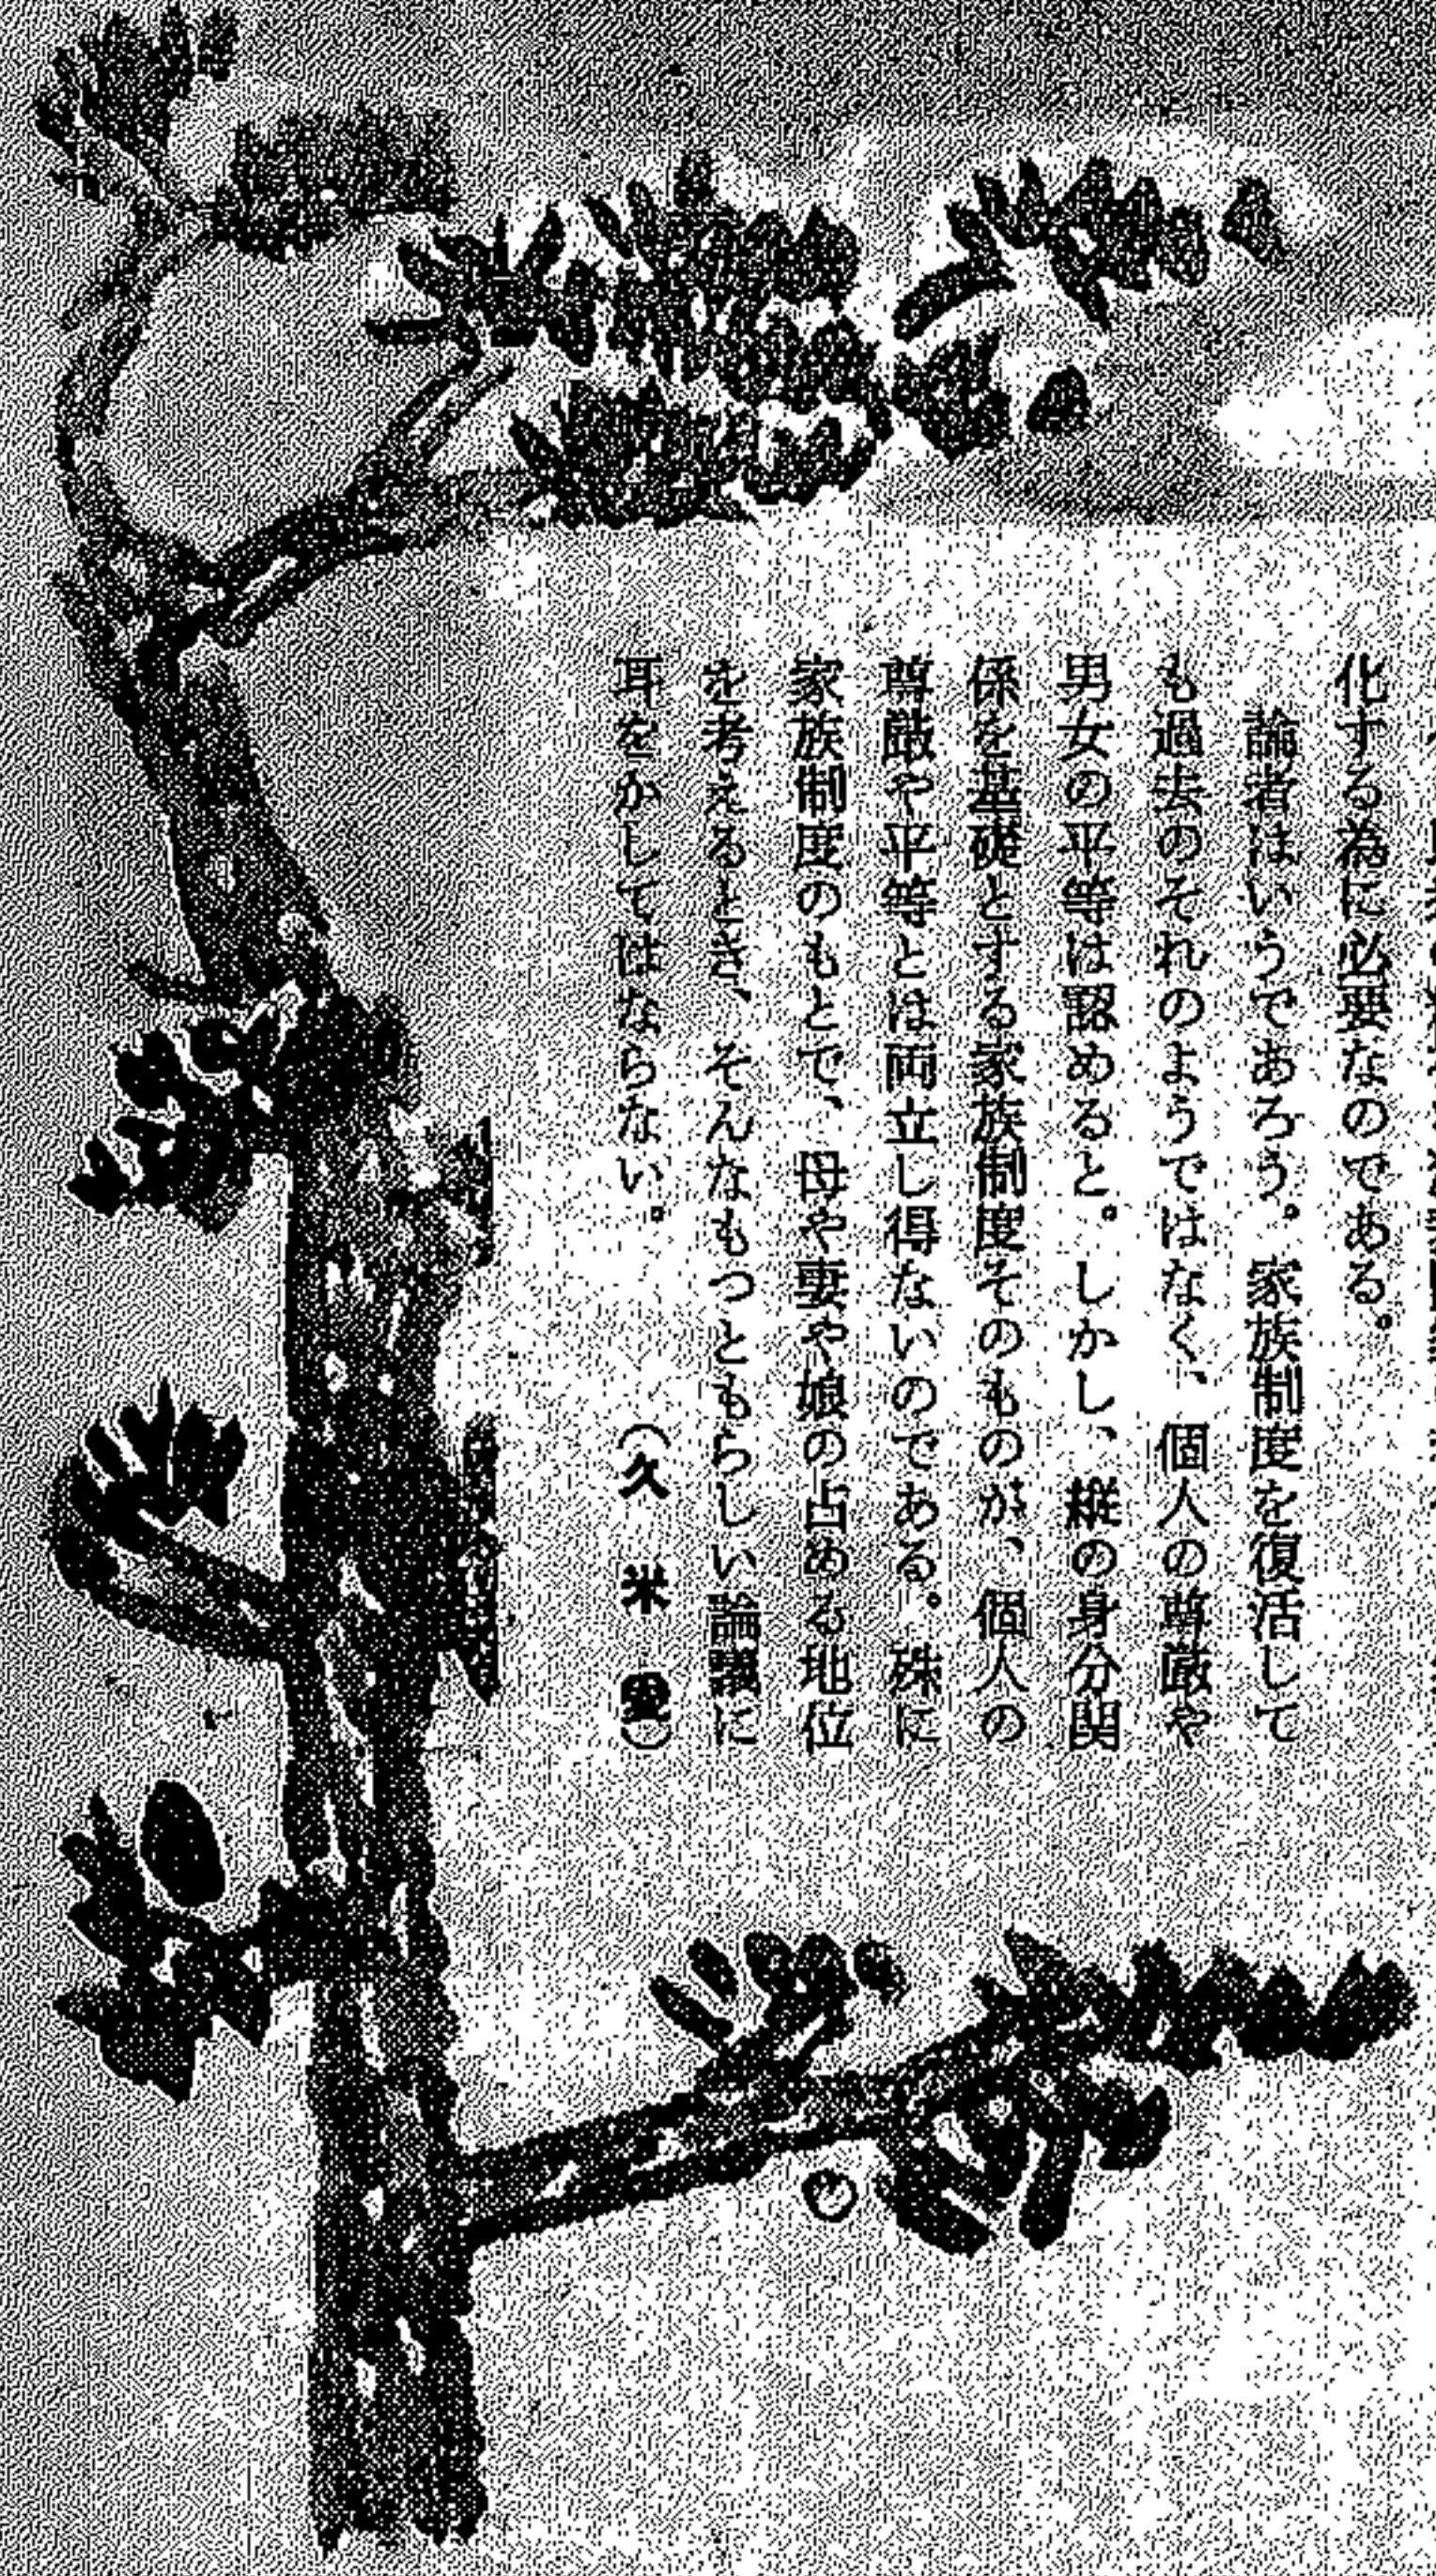 化する為に必要なのである。
論者はいうであろう。家族制度を復活して
も過去のそれのようではなく、個人の尊厳や
男女の平等は認めると。しかし、縦の身分関
係を基礎とする家族制度そのものが、個人の
尊厳や平等とは両立し得ないのである。殊に
家族制度のもとで、母や妻や娘の占める地位
を考えるとき、そんなもつともらしい論議に
耳をかしてはならない。
（久米愛）